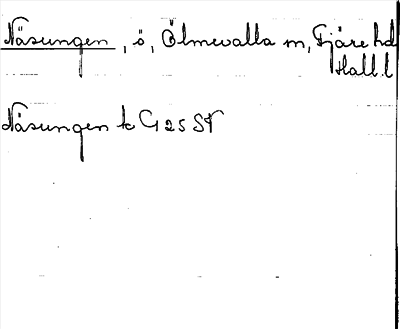 Näsungen, ö, Ölmevalla sn, Fjäre hd
Hall. l
Näsungen k G 25 SV